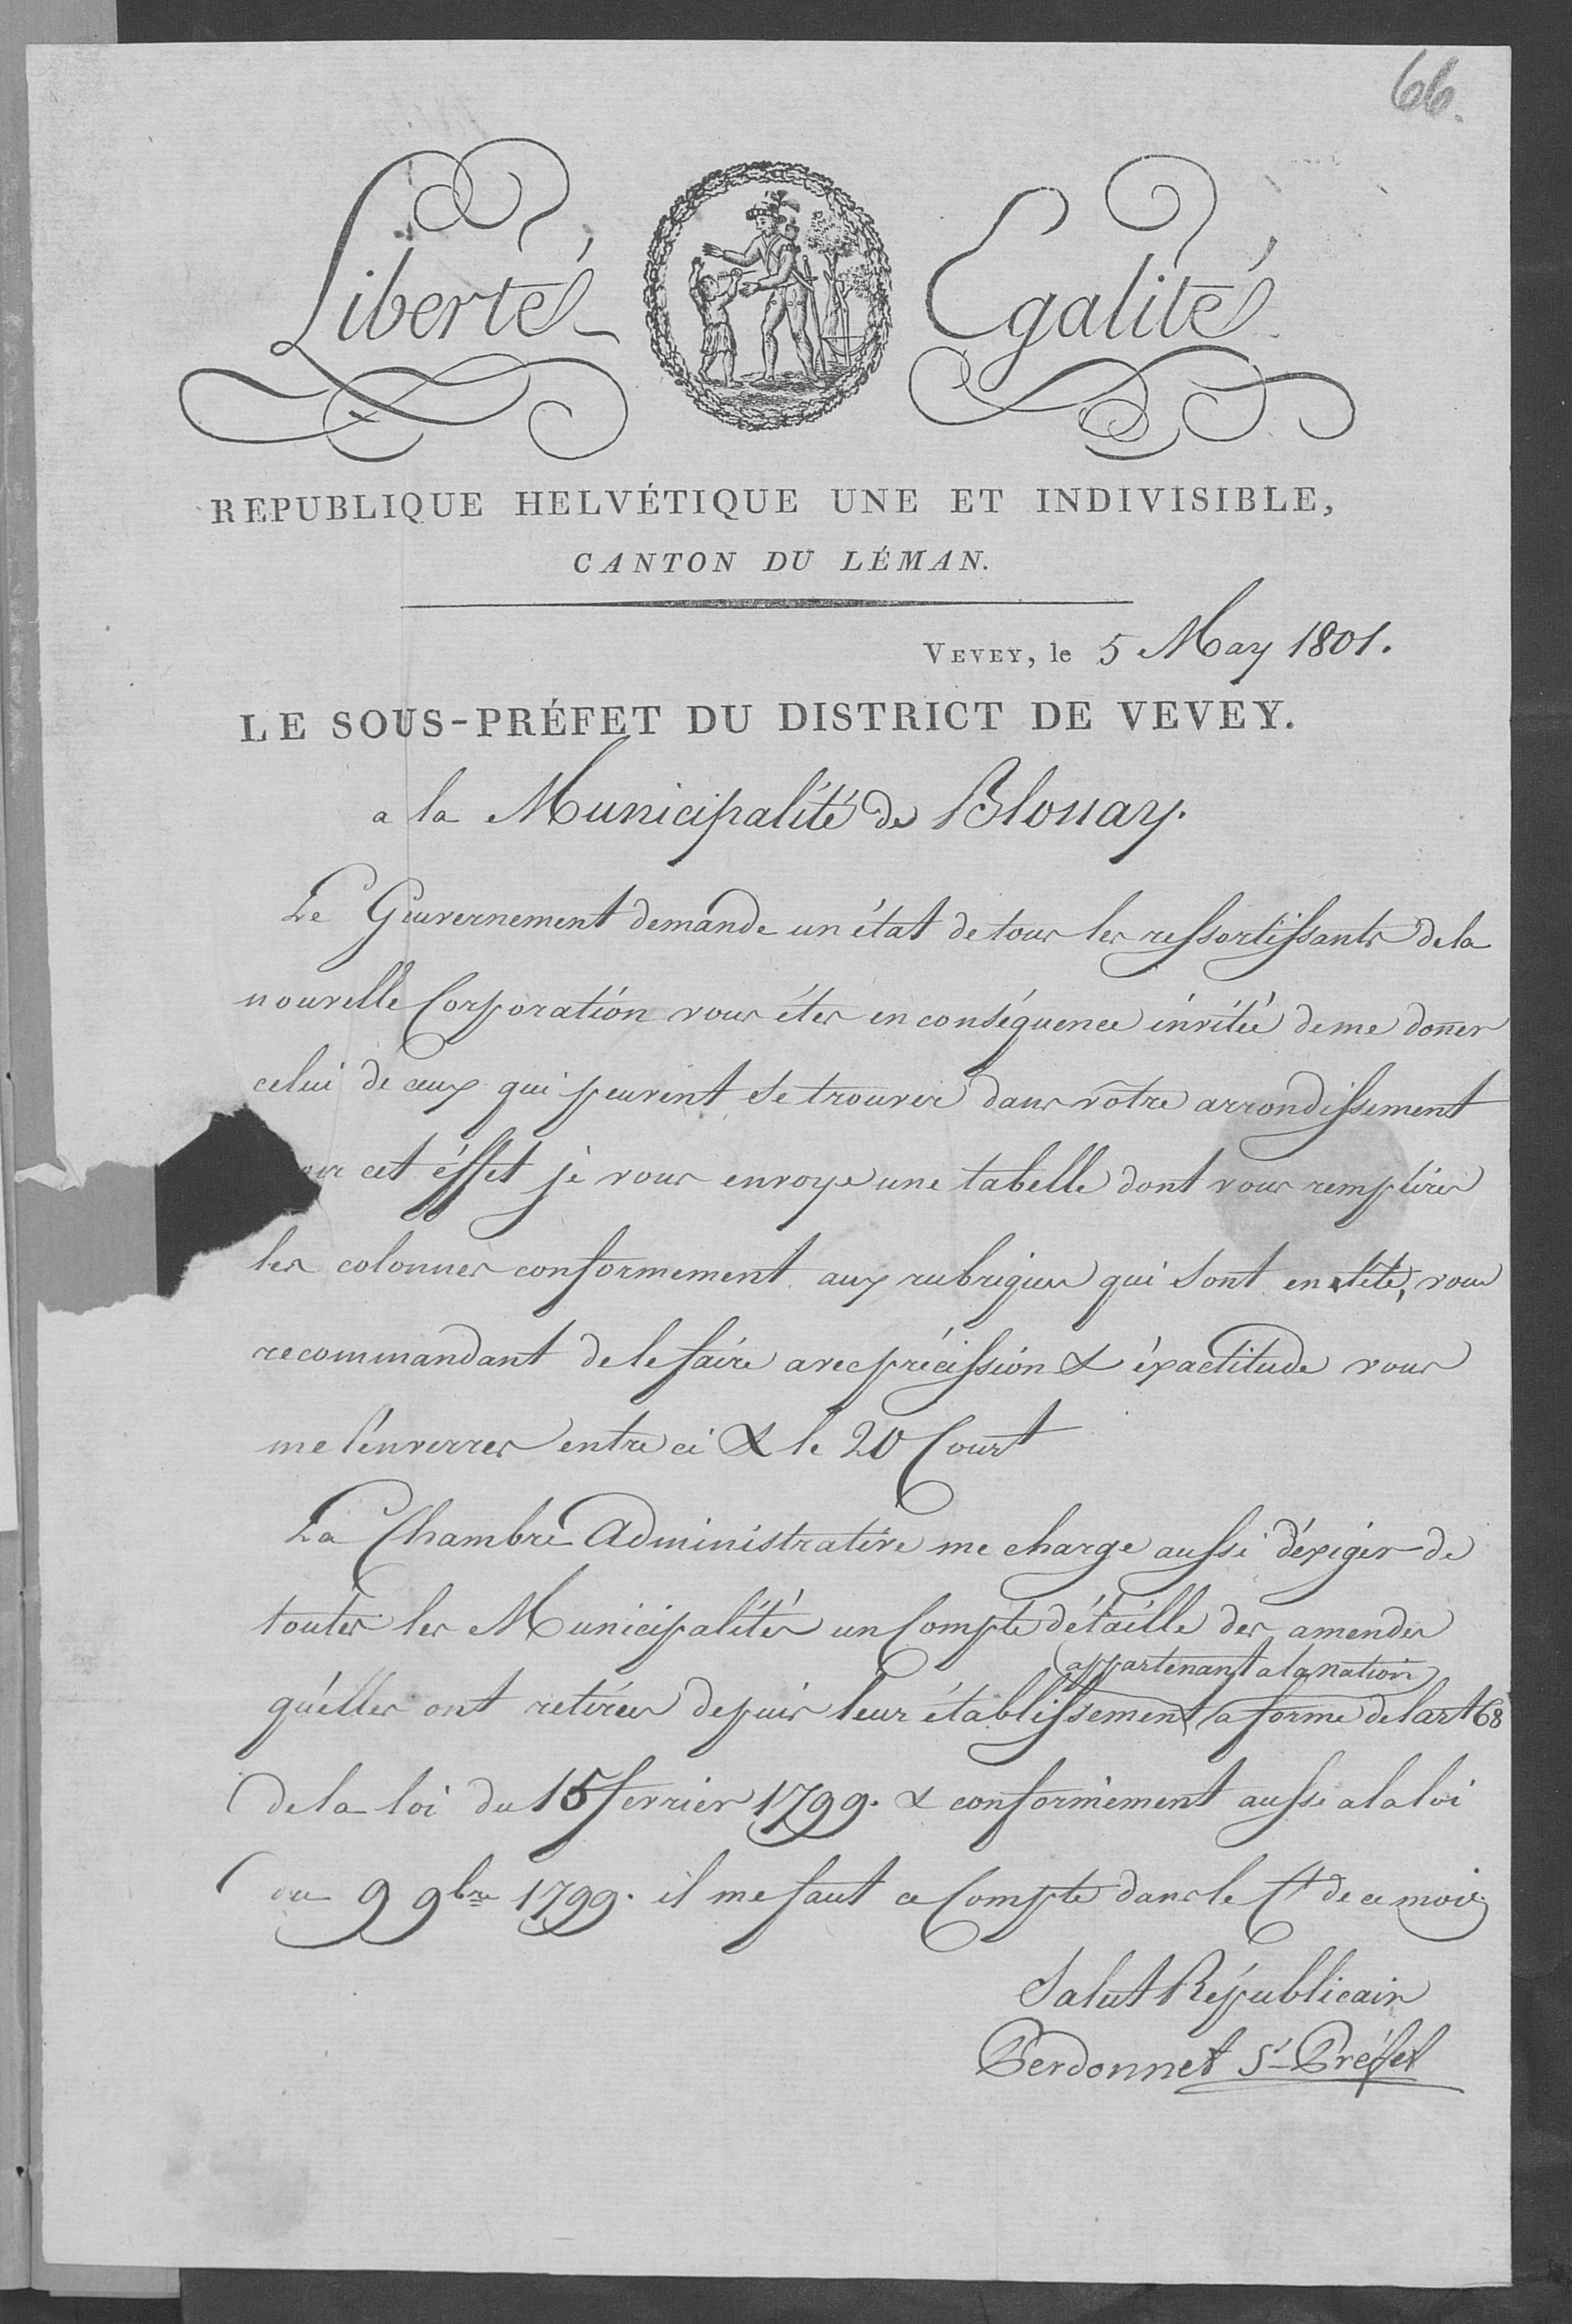 66.
Liberté Egalité
REPUBLIQUE HELVÉTIQUE UNE ET INDIVISIBLE,
CANTON DU LÉMAN.
VEVEY, le 5 May 1801.
LE SOUS-PRÉFET DU DISTRICT DE VEVEY.
a la Municipalité de Blonay.
Le Gouvernement demande un état de tous les ressortissants de la
nouvelle Corporation vous étes en conséquence invitée de me doñer
celui de ceux qui peuvent se trouver dans vôtre arrondissement
cet éffet je vous envoye une tabelle dont vous remplires
les colonnes conformement aux rubriques qui sont en tête, vous
recommandant de le faire avec précission & éxactitude vous
me l'enverres entre ci & le 20 Court
La Chambre Administrative me charge aussi d'éxiger de
toutes les Municipalités un Compte détaille des amendes
appartenant a la nation
qu'elles ont retirées depuis leur établissement a forme de l'art 68
de la loi du 15 fevrier 1799. & conformément aussi a la loi
du 9 9bre 1799. il me faut ce Compte dans le Ct de ce mois
Salut Républicain
Perdonnet S-Préfet